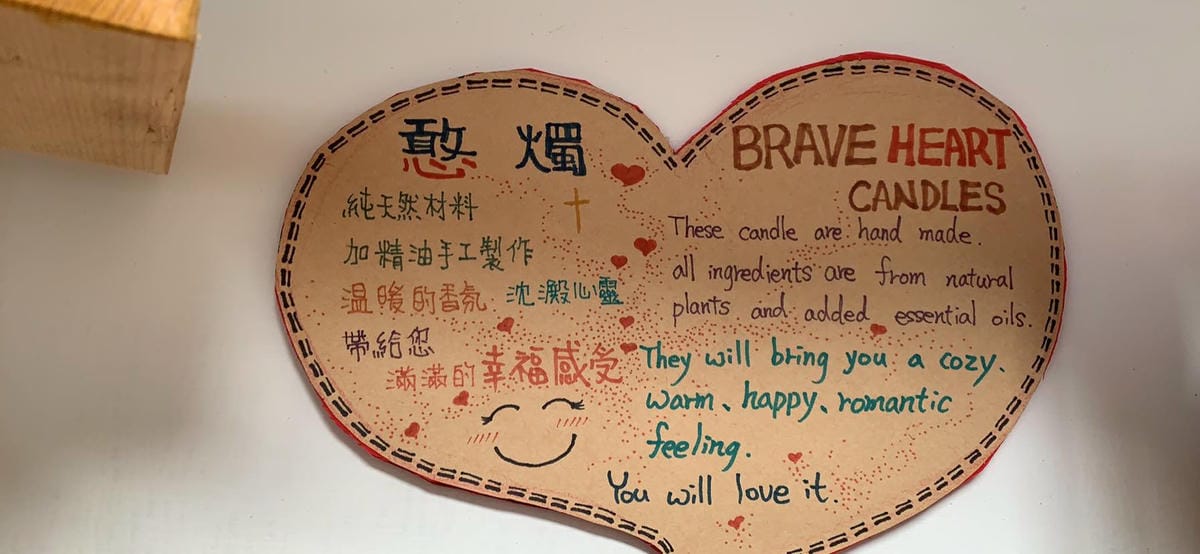 憨 燭
純天然材料
加精油手工製作
温暖的香氛 沈澱心靈
帶給您
滿滿的幸福感受
BRAVE HEART
CANDLES
These candle are hand made.
all ingredients are from natural
plants and added essential oils.
They will bring you a cozy.
warm、happy、romantic
feeling.
You will love it.